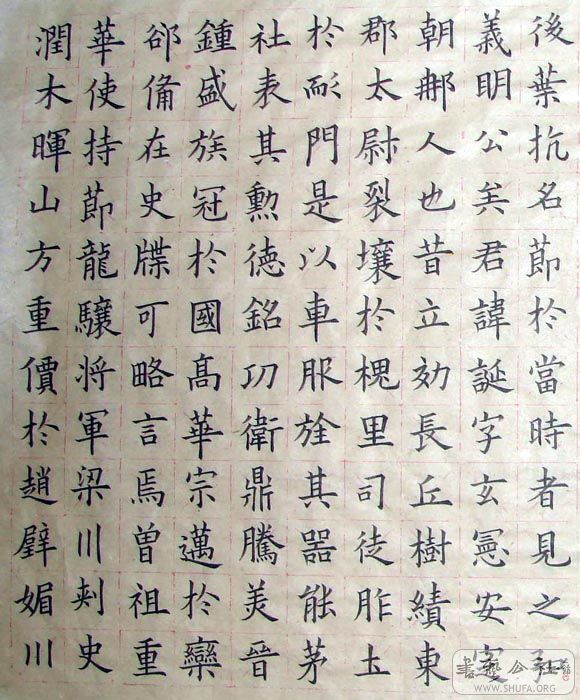 後葉抗名節於當時者見之弘
義明公矣君諱誕字玄憲安定
朝那人也昔立効長丘樹績東
郡太尉裂壤於槐里司徒胙土
於耏門是以車服旌其器能茅
社表其勳德銘功衛鼎騰美晉
鍾盛族冠於國高華宗邁於欒
郤備在史牒可略言焉曾祖重
華使持節龍驤将軍梁川刺史
潤木暉山方重價於趙璧媚川
書藝公社
WWW.SHUFA.ORG